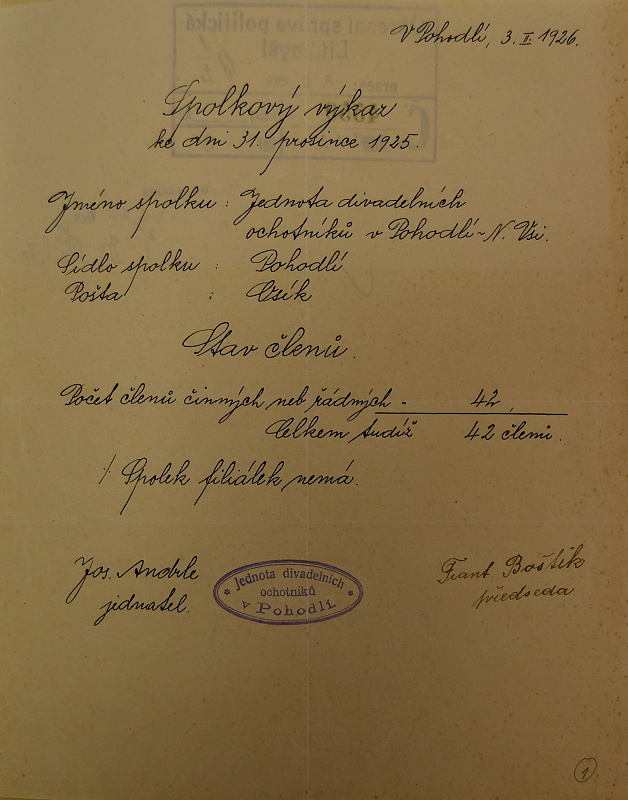 V Pohodlí, 3. II. 1926.
Spolkový výkaz
ke dni 31. prosince 1925.
Jméno spolku : Jednota divadelních
ochotníků v Pohodlí - N. Vsi.
Sídlo spolku : Pohodlí
Pošta : Osík
Stav členů.
Počet členů činných neb řádných - 42,
Celkem tudíž 42 členů.
/ Spolek filiálek nemá.
Jos. Andrle
jednatel.
* Jednota divadelních *
ochotníků
v Pohodlí.
Frant. Boštík
předseda
1